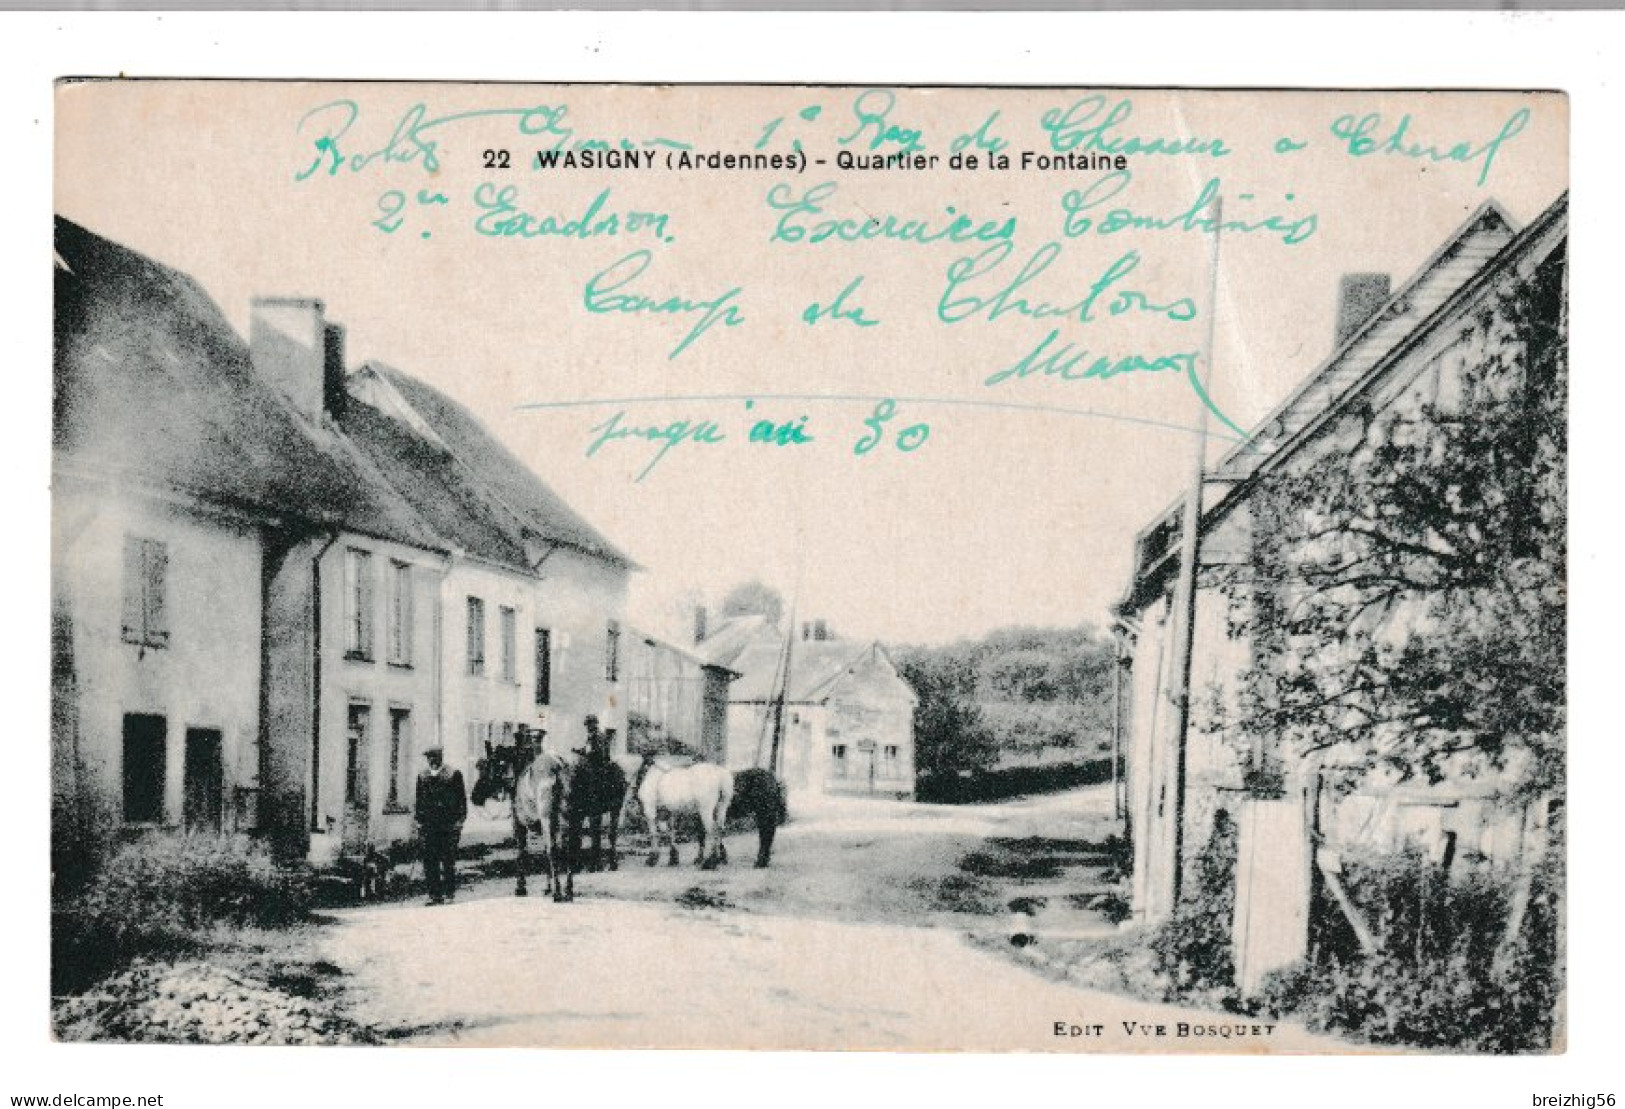 1e Reg de Chasseur a Cheval
22 WASIGNY (Ardennes) - Quartier de la Fontaine
2en Excadron. Exercices Combinés
Camp de Chalons
jusqu'au 30
EDIT VVE BOSQUET
www.delcampe.net
breizhig56